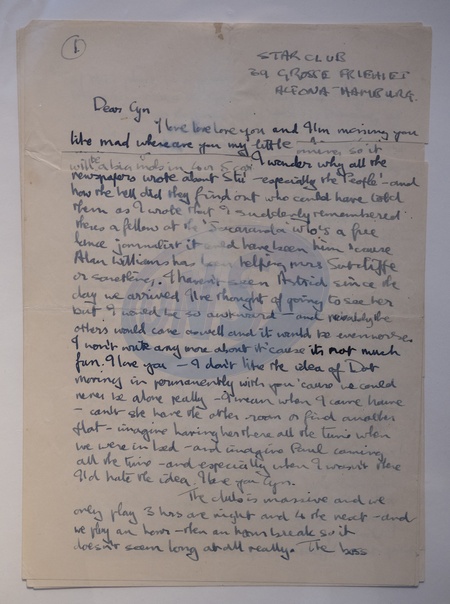 1
STAR CLUB
39 GROSSE FRIEHIET
ALTONA-HAMBURG.
Dear Cyn
I love love love you and I'm missing you
like mad where are you my little
I wonder why all the
newspapers wrote about Stu - especially the 'People' - and
how the hell did they find out who could have told
them as I wrote that I suddenly remembered
theres a fellow at the 'Jacaranda' who's a free
lance journalist it could have been him 'cause
Alan Williams has been helping mrs Sutcliffe
or something. I haven't seen Astrid since the
day we arrived I've thought of going to see her
but I would be so awkward - and probably the
others would come as well and it would be even worse.
I won't write any more about it 'cause its not much
fun. I love you - I don't like the idea of Dot
moving in permanently with you 'cause we could
never be alone really - I mean when I come home
- can't she have the other room or find another
flat - imagine having her there all the time when
we were in bed - and imagine Paul coming
all the time - and especially when I wasn't there
I'd hate the idea. I love you Cyn.
The club is massive and we
only play 3 hrs one night and 4 the next - and
we play an hour - then an hours break so it
doesn't seem long at all really. The boss